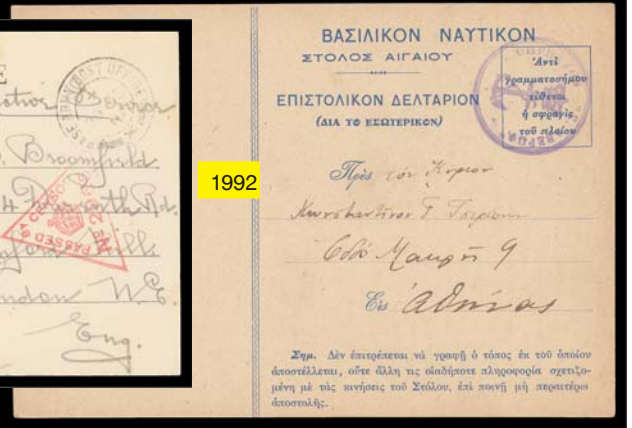 POST OFFICE
Service
Broomfield
4
PASSED BY CENSOR
London N.E.
Eng.
1992
ΒΑΣΙΛΙΚΟΝ ΝΑΥΤΙΚΟΝ
ΣΤΟΛΟΣ ΑΙΓΑΙΟΥ
ΕΠΙΣΤΟΛΙΚΟΝ ΔΕΛΤΑΡΙΟΝ
(ΔΙΑ ΤΟ ΕΣΩΤΕΡΙΚΟΝ)
Ἀντὶ
γραμματοσήμου
τίθεται
ἡ σφραγὶς
τοῦ πλοίου
Πρὸς τὸν Κύριον
Κωνσταντῖνον Γ.
Ὁδὸς Μαυρῆ 9
Εἰς Ἀθήνας
Σημ. Δὲν ἐπιτρέπεται νὰ γραφῇ ὁ τόπος ἐκ τοῦ ὁποίου
ἀποστέλλεται, οὔτε ἄλλη τις οἱαδήποτε πληροφορία σχετιζο-
μένη μὲ τὰς κινήσεις τοῦ Στόλου, ἐπὶ ποινῇ μὴ περαιτέρω
ἀποστολῆς.